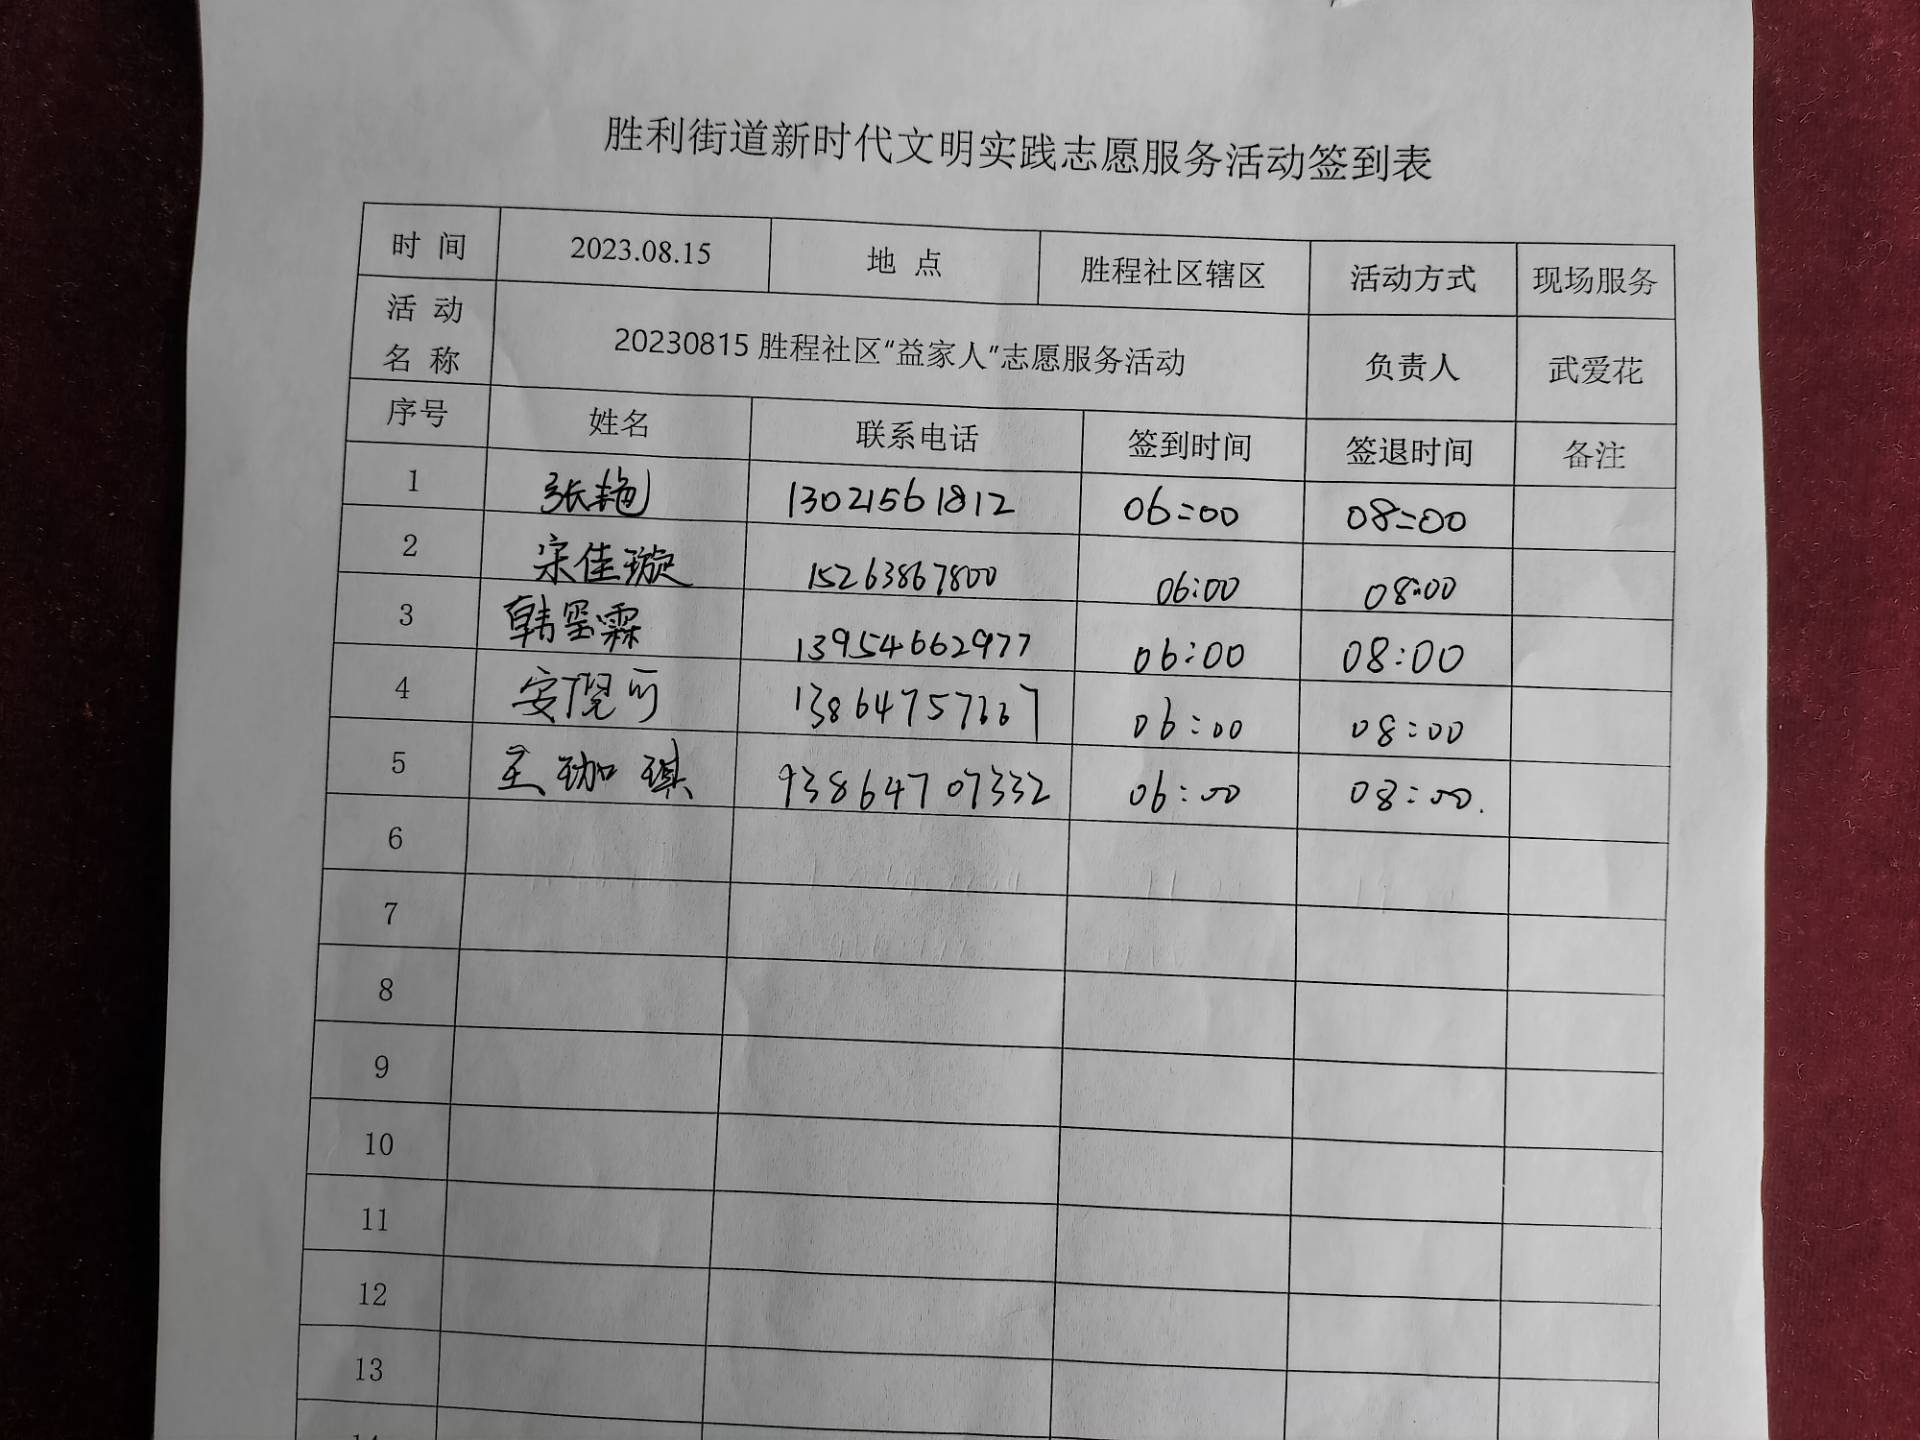 胜利街道新时代文明实践志愿服务活动签到表
时 间 2023.08.15 地 点 胜程社区辖区 活动方式 现场服务
活 动
名 称 20230815胜程社区“益家人”志愿服务活动 负责人 武爱花
序号 姓名 联系电话 签到时间 签退时间 备注
1 张艳 13021561812 06:00 08:00
2 宋佳璇 15263867800 06:00 08:00
3 韩 霖 13954662977 06:00 08:00
4 安 可 06:00 08:00
5 王珈琪 13864707332 06:00 08:00.
6
7
8
9
10
11
12
13